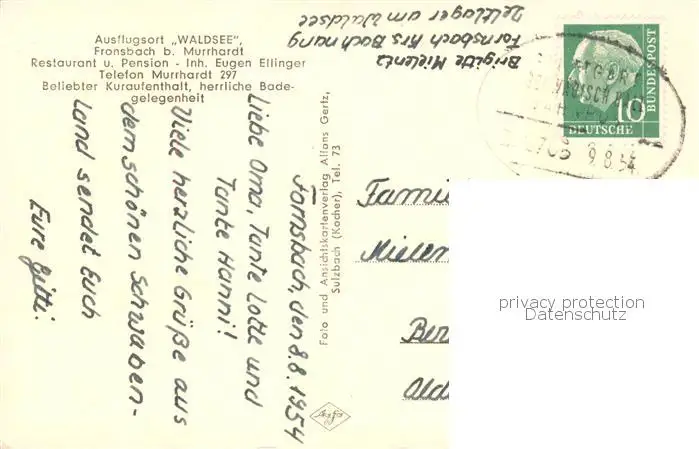 Ausflugsort „WALDSEE",
Fronsbach b. Murrhardt
Restaurant u. Pension - Inh. Eugen Ellinger
Telefon Murrhardt 297
Beliebter Kuraufenthalt, herrliche Bade-
gelegenheit
Brigitte Mielentz
Fornsbach Krs Backnang
Zeltlager am Waldsee
Fornsbach, den 8.8.1954
Liebe Oma, Tante Lotte und
Tante Hanni!
Viele herzliche Grüße aus
dem schönen Schwaben-
land sendet Euch
Eure Gitti.
Foto und Ansichtskartenverlag Alfons Gertz,
Sulzbach (Kocher), Tel. 73
Agfa
DEUTSCHE
BUNDESPOST
10
9.8.54
Famil
Mielen
Ber
Olde
privacy protection
Datenschutz